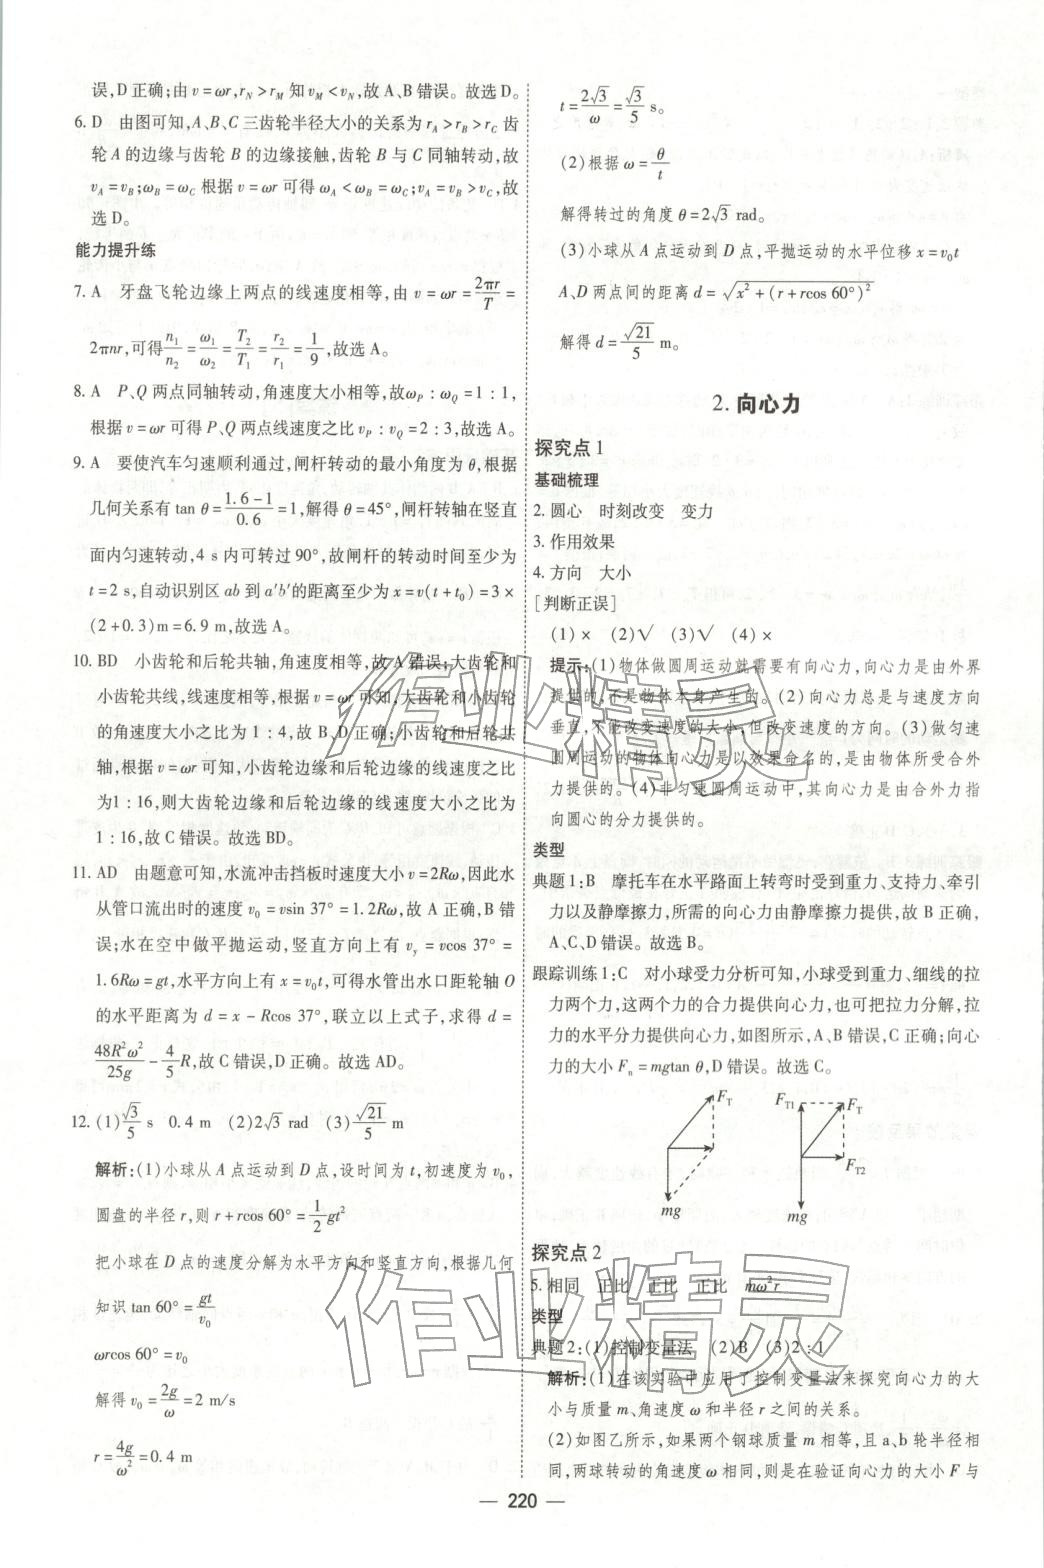 误,D正确;由v=ωr,rN>rM知vM<vN,故A、B错误。故选D。
6. D　由图可知,A、B、C三齿轮半径大小的关系为rA>rB>rC齿
轮A的边缘与齿轮B的边缘接触,齿轮B与C同轴转动,故
vA=vB;ωB=ωC根据v=ωr可得ωA<ωB=ωC;vA=vB>vC,故
选D。
能力提升练
7. A　牙盘飞轮边缘上两点的线速度相等,由v=ωr=2πr/T=
2πnr,可得n1/n2=ω1/ω2=T2/T1=r2/r1=1/9,故选A。
8. A　P、Q两点同轴转动,角速度大小相等,故ωP∶ωQ=1∶1,
根据v=ωr可得P、Q两点线速度之比vP∶vQ=2∶3,故选A。
9. A　要使汽车匀速顺利通过,闸杆转动的最小角度为θ,根据
几何关系有tan θ=(1.6-1)/0.6=1,解得θ=45°,闸杆转轴在竖直
面内匀速转动,4 s内可转过90°,故闸杆的转动时间至少为
t=2 s,自动识别区ab到a′b′的距离至少为x=v(t+t0)=3×
(2+0.3)m=6.9 m,故选A。
10. BD　小齿轮和后轮共轴,角速度相等,故A错误;大齿轮和
小齿轮共线,线速度相等,根据v=ωr可知,大齿轮和小齿轮
的角速度大小之比为1∶4,故B、D正确;小齿轮和后轮共
轴,根据v=ωr可知,小齿轮边缘和后轮边缘的线速度之比
为1∶16,则大齿轮边缘和后轮边缘的线速度大小之比为
1∶16,故C错误。故选BD。
11. AD　由题意可知,水流冲击挡板时速度大小v=2Rω,因此水
从管口流出时的速度v0=vsin 37°=1.2Rω,故A正确,B错
误;水在空中做平抛运动,竖直方向上有vy=vcos 37°=
1.6Rω=gt,水平方向上有x=v0t,可得水管出水口距轮轴O
的水平距离为d=x-Rcos 37°,联立以上式子,求得d=
48R²ω²/25g-4/5R,故C错误,D正确。故选AD。
12. (1)√3/5 s　0.4 m　(2)2√3 rad　(3)√21/5 m
解析:(1)小球从A点运动到D点,设时间为t,初速度为v0,
圆盘的半径r,则r+rcos 60°=1/2gt²
把小球在D点的速度分解为水平方向和竖直方向,根据几何
知识tan 60°=gt/v0
ωrcos 60°=v0
解得v0=2g/ω=2 m/s
r=4g/ω²=0.4 m
t=2√3/ω=√3/5 s。
(2)根据ω=θ/t
解得转过的角度θ=2√3 rad。
(3)小球从A点运动到D点,平抛运动的水平位移x=v0t
A、D两点间的距离d=√(x²+(r+rcos 60°)²)
解得d=√21/5 m。
2. 向心力
探究点1
基础梳理
2. 圆心　时刻改变　变力
3. 作用效果
4. 方向　大小
[判断正误]
(1)×　(2)√　(3)√　(4)×
提示:(1)物体做圆周运动就需要有向心力,向心力是由外界
提供的,不是物体本身产生的。(2)向心力总是与速度方向
垂直,不能改变速度的大小,但改变速度的方向。(3)做匀速
圆周运动的物体向心力是以效果命名的,是由物体所受合外
力提供的。(4)非匀速圆周运动中,其向心力是由合外力指
向圆心的分力提供的。
类型
典题1:B　摩托车在水平路面上转弯时受到重力、支持力、牵引
力以及静摩擦力,所需的向心力由静摩擦力提供,故B正确,
A、C、D错误。故选B。
跟踪训练1:C　对小球受力分析可知,小球受到重力、细线的拉
力两个力,这两个力的合力提供向心力,也可把拉力分解,拉
力的水平分力提供向心力,如图所示,A、B错误,C正确;向心
力的大小Fn=mgtan θ,D错误。故选C。
FT
mg
FT1
FT
FT2
mg
探究点2
5. 相同　正比　正比　正比　mω²r
类型
典题2:(1)控制变量法　(2)B　(3)2∶1
解析:(1)在该实验中应用了控制变量法来探究向心力的大
小与质量m、角速度ω和半径r之间的关系。
(2)如图乙所示,如果两个钢球质量m相等,且a、b轮半径相
同,两球转动的角速度ω相同,则是在验证向心力的大小F与
— 220 —
作业精灵
作业精灵